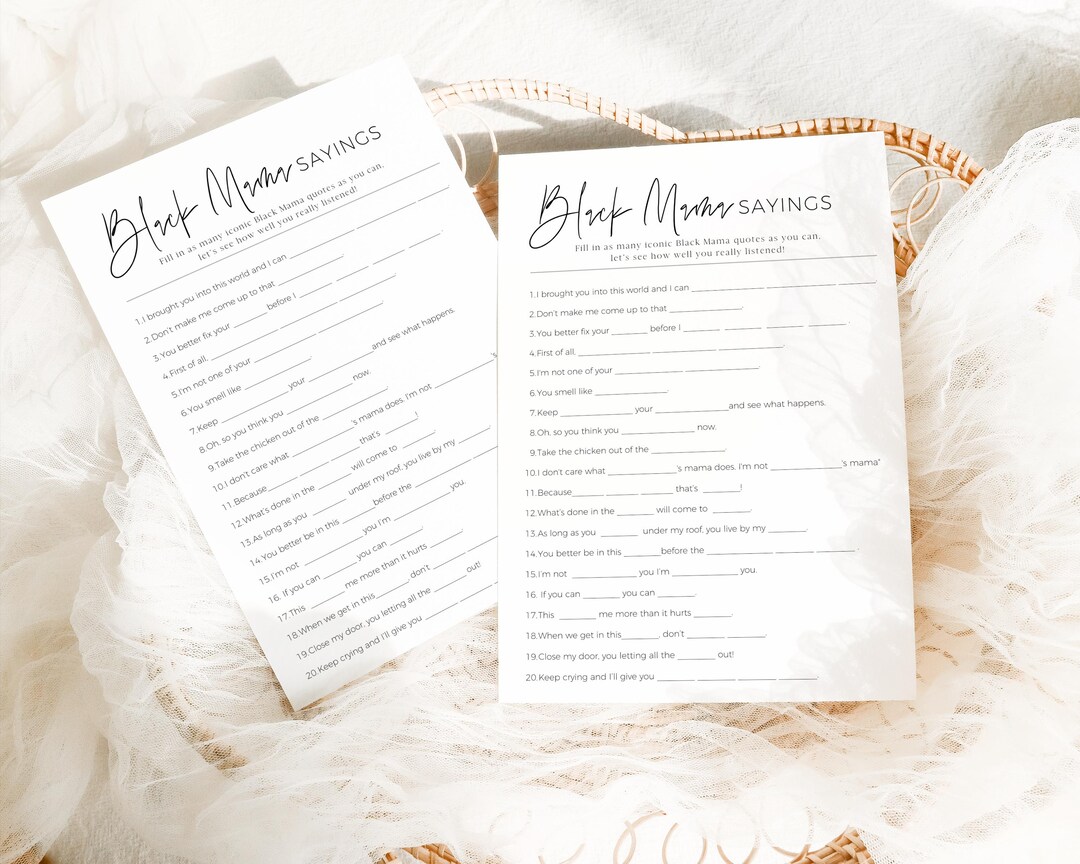 Black Mama SAYINGS
Fill in as many iconic Black Mama quotes as you can,
let's see how well you really listened!
1.I brought you into this world and I can ________ ____ ____
2.Don't make me come up to that ________.
3.You better fix your ____ before I ____ ____ ____ ____.
4.First of all, ________ ____ ____.
5.I'm not one of your ________ ____.
6.You smell like ________.
7.Keep ________ your ________and see what happens.
8.Oh, so you think you ________ now.
9.Take the chicken out of the ________.
10.I don't care what ________'s mama does, I'm not ________'s
11.Because____ ____ ____ that's ____!
12.What's done in the ____ will come to ____.
13.As long as you ____ under my roof, you live by my ____.
14.You better be in this ____before the ____ ____
15.I'm not ____ you I'm ____ you.
16. If you can ____ you can ____.
17.This ____ me more than it hurts ____.
18.When we get in this____, don't ____ ____
19.Close my door, you letting all the ____ out!
20.Keep crying and I'll give you ____ ____
Black Mama SAYINGS
Fill in as many iconic Black Mama quotes as you can,
let's see how well you really listened!
1.I brought you into this world and I can ________ ____ ____ ____.
2.Don't make me come up to that ________.
3.You better fix your ____ before I ____ ____ ____ ____.
4.First of all, ________ ____ ____.
5.I'm not one of your ________ ____.
6.You smell like ________.
7.Keep ________ your ________and see what happens.
8.Oh, so you think you ________ now.
9.Take the chicken out of the ________.
10.I don't care what ________'s mama does, I'm not ________'s mama"
11.Because____ ____ ____ that's ____!
12.What's done in the ____ will come to ____.
13.As long as you ____ under my roof, you live by my ____.
14.You better be in this ____before the ____ ____ ____.
15.I'm not ____ you I'm ____ you.
16. If you can ____ you can ____.
17.This ____ me more than it hurts ____.
18.When we get in this____, don't ____ ____.
19.Close my door, you letting all the ____ out!
20.Keep crying and I'll give you ____ ____ ____ ____.